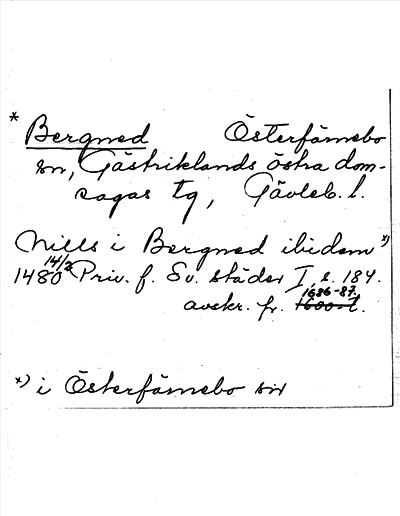 * Bergned Österfärnebo
sn, Gästriklands östra dom-
sagas tg, Gävleb. l.
Nills i Bergned ibidem x)
1480 14/2 Priv. f. Sv. städer I, s. 184.
avskr. fr. 1600-t. 1686-87.
x) i Österfärnebo sn